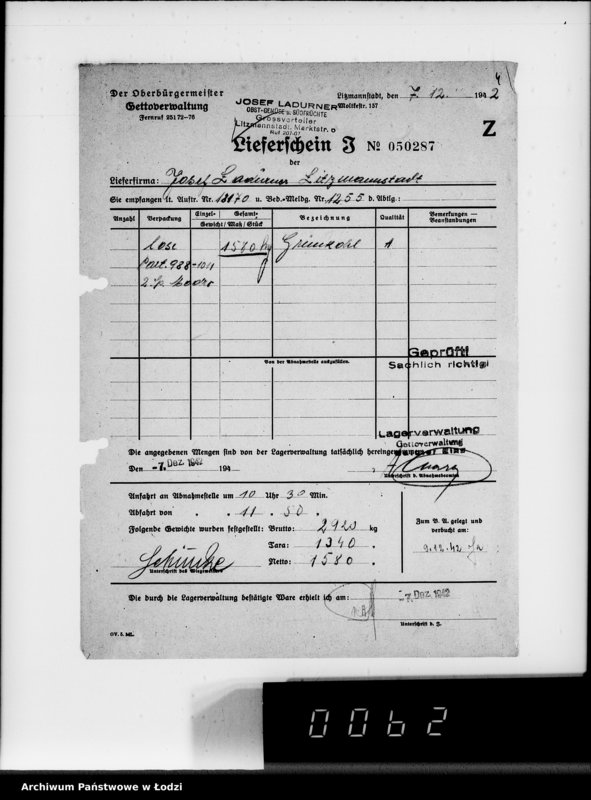 4
Der Oberbürgermeister
Gettoverwaltung
Fernruf 25172-76
JOSEF LADURNER
OBST-GEMÜSE u. SÜDFRÜCHTE
Grossverteiler
Litzmannstadt, Marktstr. 9
Ruf 207-07
Litzmannstadt, den 7. 12. 1942
Moltkestr. 157
Z
Lieferschein J № 050287
der
Lieferfirma: Josef Ladurner Litzmannstadt
Sie empfangen lt. Auftr. Nr. 18170 u. Bed.-Meldg. Nr. 1255 d. Abtlg.:
Anzahl Verpackung Einzel- Gesamt- Bezeichnung Qualität Bemerkungen — Beanstandungen
Gewicht / Maß / Stück
lose 1580 kg Grünkohl A
988-1011
2
Geprüft!
Sachlich richtig!
Von der Abnahmestelle auszufüllen.
Lagerverwaltung
Gettoverwaltung
Die angegebenen Mengen sind von der Lagerverwaltung tatsächlich hereingenommen
Den -7. Dez. 1942 194
Unterschrift d. Abnahmebeamten
Anfahrt an Abnahmestelle um 10 Uhr 30 Min.
Abfahrt von " " 11 " 50 "
Folgende Gewichte wurden festgestellt: Brutto: 2920 kg
Tara: 1340 "
Netto: 1580 "
Unterschrift des Wiegemeisters
Zum V. A. gelegt und
verbucht am:
9.12.42
Die durch die Lagerverwaltung bestätigte Ware erhielt ich am: -7. Dez. 1942
Unterschrift d. J.
GV. 5. ML.
0062
Archiwum Państwowe w Łodzi